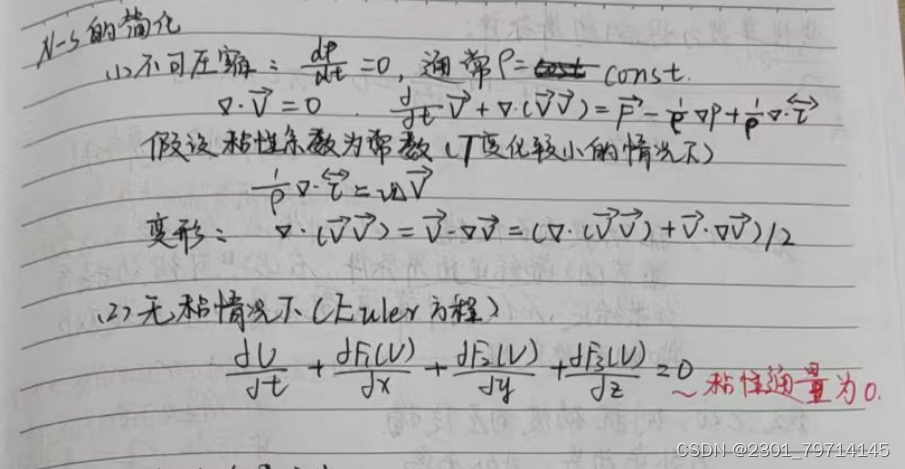 N-S的简化
(1)不可压缩：dρ/dt=0，通常ρ=const.
∇·V⃗=0. d/dt V⃗+∇·(V⃗V⃗)=F⃗-1/ρ∇p+1/ρ∇·τ⃡
假设粘性系数为常数（T变化较小的情况下）
1/ρ∇·τ⃡=υΔV⃗
变形：∇·(V⃗V⃗)=V⃗·∇V⃗=(∇·(V⃗V⃗)+V⃗·∇V⃗)/2
(2)无粘情况下（Euler方程）
dU/dt+dF₁(U)/dx+dF₂(U)/dy+dF₃(U)/dz=0
~粘性通量为0.
CSDN @2301_79714145